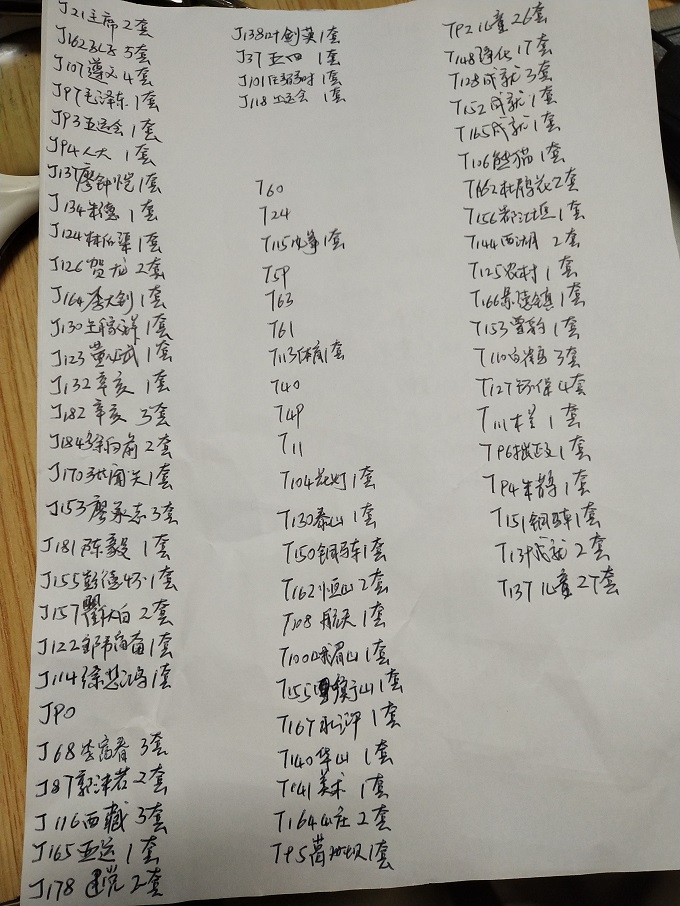 J21主席2套
J162孔子5套
J107遵义4套
J97毛泽东1套
J93五运会1套
J94人大1套
J137廖仲恺1套
J134朱德1套
J124林伯渠1套
J126贺龙2套
J164李大钊1套
J130王稼祥1套
J123董必武1套
J132辛亥1套
J182辛亥3套
J184徐向前2套
J170 1套
J153廖承志3套
J181陈毅1套
J155彭德怀1套
J157 2套
J122邹韬奋1套
J114徐悲鸿1套
J90
J68 3套
J87郭沫若2套
J116西藏3套
J165亚运1套
J178建党2套
J138叶剑英1套
J37五四1套
J101 1套
J118 运会1套
T60
T24
T115 1套
T59
T63
T61
T113体育1套
T40
T49
T11
T104花灯1套
T130泰山1套
T150铜马车1套
T162恒山2套
T108航天1套
T100峨眉山1套
T155衡山1套
T167水浒1套
T140华山1套
T141美术1套
T164山庄2套
T95葛洲坝1套
T92儿童26套
T148绿化17套
T128成就3套
T152成就1套
T165成就1套
T106熊猫1套
T162杜鹃花2套
T156都江堰1套
T144西湖2套
T125农村1套
T166景德镇1套
T153雪豹1套
T110白鹤3套
T127环保4套
T111木兰1套
T96拙政1套
T94朱鹮1套
T151铜马车1套
T139成就2套
T137儿童27套